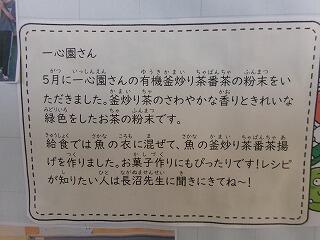 一心園さん
5月に一心園さんの有機釜炒り茶番茶の粉末をい
ただきました。釜炒り茶のさわやかな香りときれいな
緑色をしたお茶の粉末です。
給食では魚の衣に混ぜて、魚の釜炒り茶番茶揚
げを作りました。お菓子作りにもぴったりです!レシピ
が知りたい人は長沼先生に聞きにきてね~!